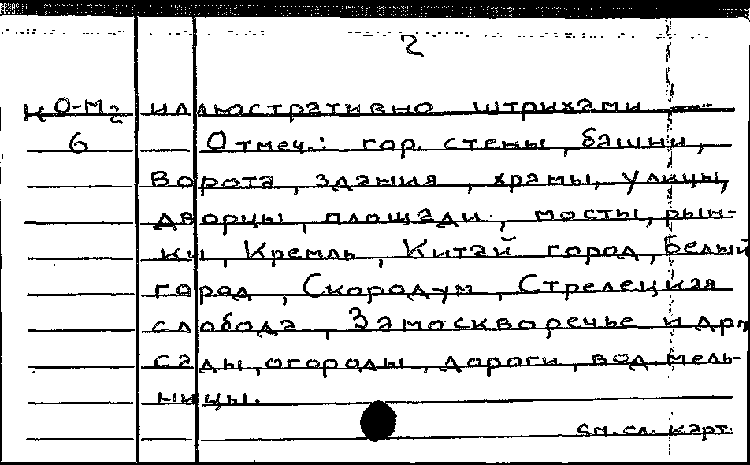 2
КО-М2 иллюстративно штрихами
6 Отмеч.: гор. стены, башни,
ворота, здания, храмы, улицы,
дворцы, площади, мосты, рын-
ки, Кремль, Китай город, Белый
город, Скородум, Стрелецкая
слобода, Замоскворечье и др,
сады, огороды, дороги, вод. мель-
ницы.
см. сл. карт.